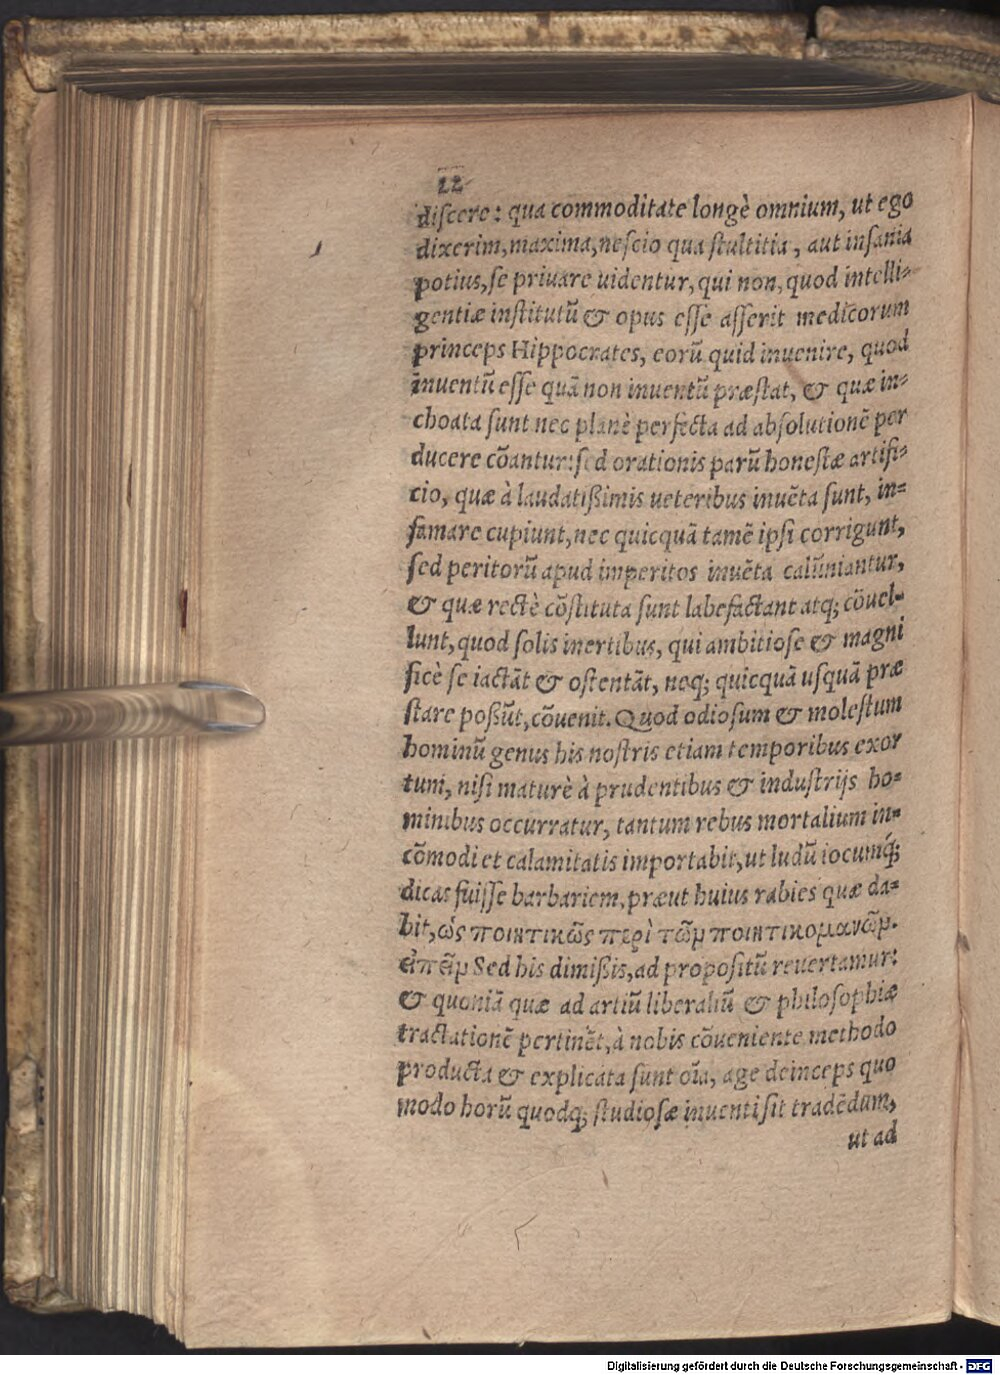 22
discere: qua commoditate longè omnium, ut ego
dixerim, maxima, nescio qua stultitia, aut insania
potius, se priuare uidentur, qui non, quod intelli-
gentiæ institutū & opus esse asserit medicorum
princeps Hippocrates, eorū quid inuenire, quod
inuentū esse quā non inuentū præstat, & quæ in-
choata sunt nec planè perfecta ad absolutionē per
ducere cōantur: sed orationis parū honestæ artifi-
cio, quæ à laudatißimis ueteribus inuēta sunt, in-
famare cupiunt, nec quicquā tamē ipsi corrigunt,
sed peritorū apud imperitos inuēta calūniantur,
& quæ rectè cōstituta sunt labefactant atq; cōuel-
lunt, quod solis inertibus, qui ambitiose & magni
ficè se iactāt & ostentāt, neq; quicquā usquā præ
stare poßūt, cōuenit. Quod odiosum & molestum
hominū genus his nostris etiam temporibus exor
tum, nisi maturè à prudentibus & industrijs ho-
minibus occurratur, tantum rebus mortalium in-
cōmodi et calamitatis importabit, ut ludū iocumq́;
dicas fuisse barbariem, præut huius rabies quæ da-
bit, ὡς ποιητικῶς περὶ τῶν ποιητικομανῶν.
εἰπεῖν Sed his dimißis, ad propositū reuertamur:
& quoniā quæ ad artiū liberaliū & philosophiæ
tractationē pertinēt, à nobis cōueniente methodo
producta & explicata sunt oīa, age deinceps quo
modo horū quodq; studiosæ inuenti sit tradēdum,
ut ad
Digitalisierung gefördert durch die Deutsche Forschungsgemeinschaft - DFG